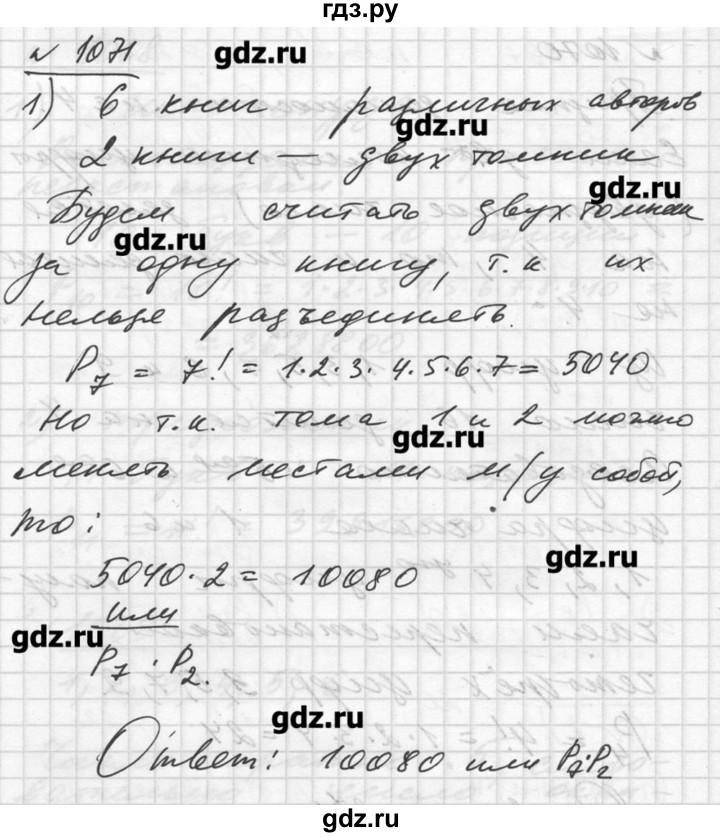 гдз.ру
№ 1071
gdz.ru
1) 6 книг различных авторов
gdz.ru
2 книги — двухтомник
gdz.ru
Будем считать двухтомник
gdz.ru
за одну книгу, т.к их
нельзя разъединять.
P7 = 7! = 1·2·3·4·5·6·7 = 5040
Но т.к. тома 1 и 2 можно
gdz.ru
менять местами м/у собой,
то:
gdz.ru
5040·2 = 10080
или
gdz.ru
P7 · P2.
gdz.ru
Ответ: 10080 или P7·P2
gdz.ru